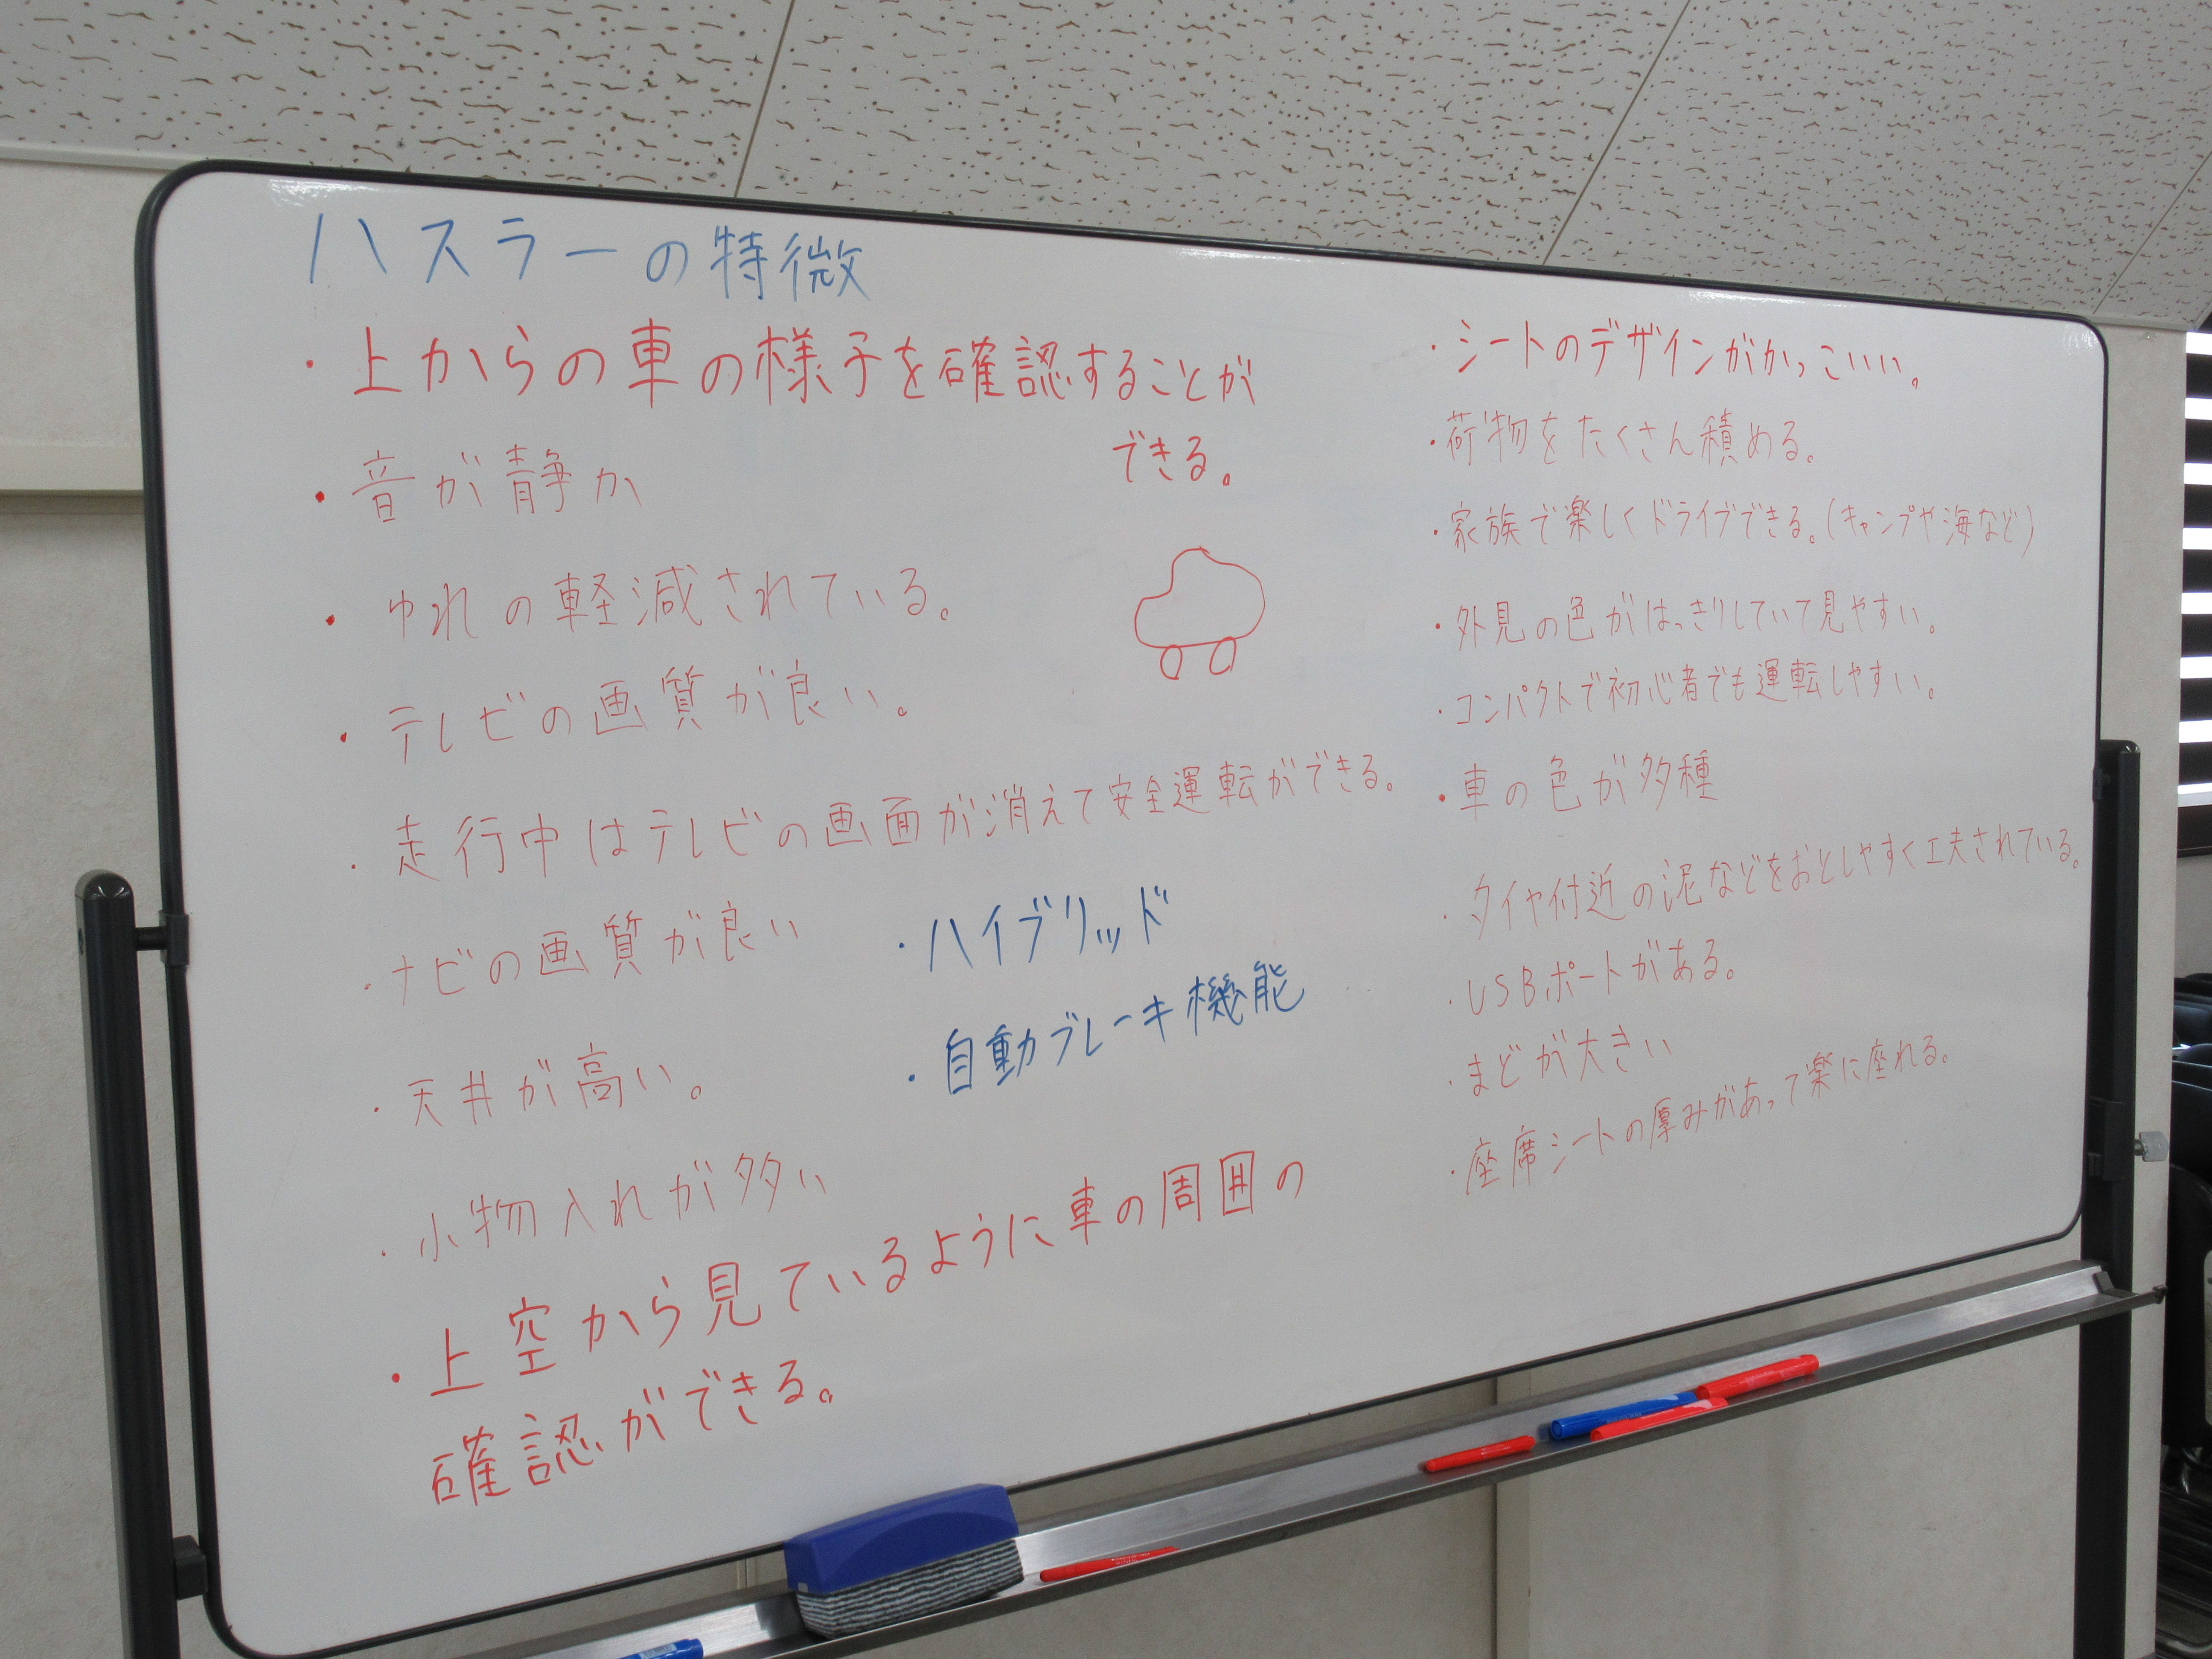 ハスラーの特微
・上からの車の様子を確認することが
できる。
・音が静か
・ゆれの軽減されている。
・テレビの画質が良い。
・走行中はテレビの画面が消えて安全運転ができる。
・ナビの画質が良い
・天井が高い。
・小物入れが多い
・上空から見ているように車の周囲の
確認ができる。
・ハイブリッド
・自動ブレーキ機能
・シートのデザインがかっこいい。
・荷物をたくさん積める。
・家族で楽しくドライブできる。(キャンプや海など)
・外見の色がはっきりしていて見やすい。
・コンパクトで初心者でも運転しやすい。
・車の色が多種
・タイヤ付近の泥などをおとしやすく工夫されている。
・USBポートがある。
・まどが大きい
・座席シートの厚みがあって楽に座れる。